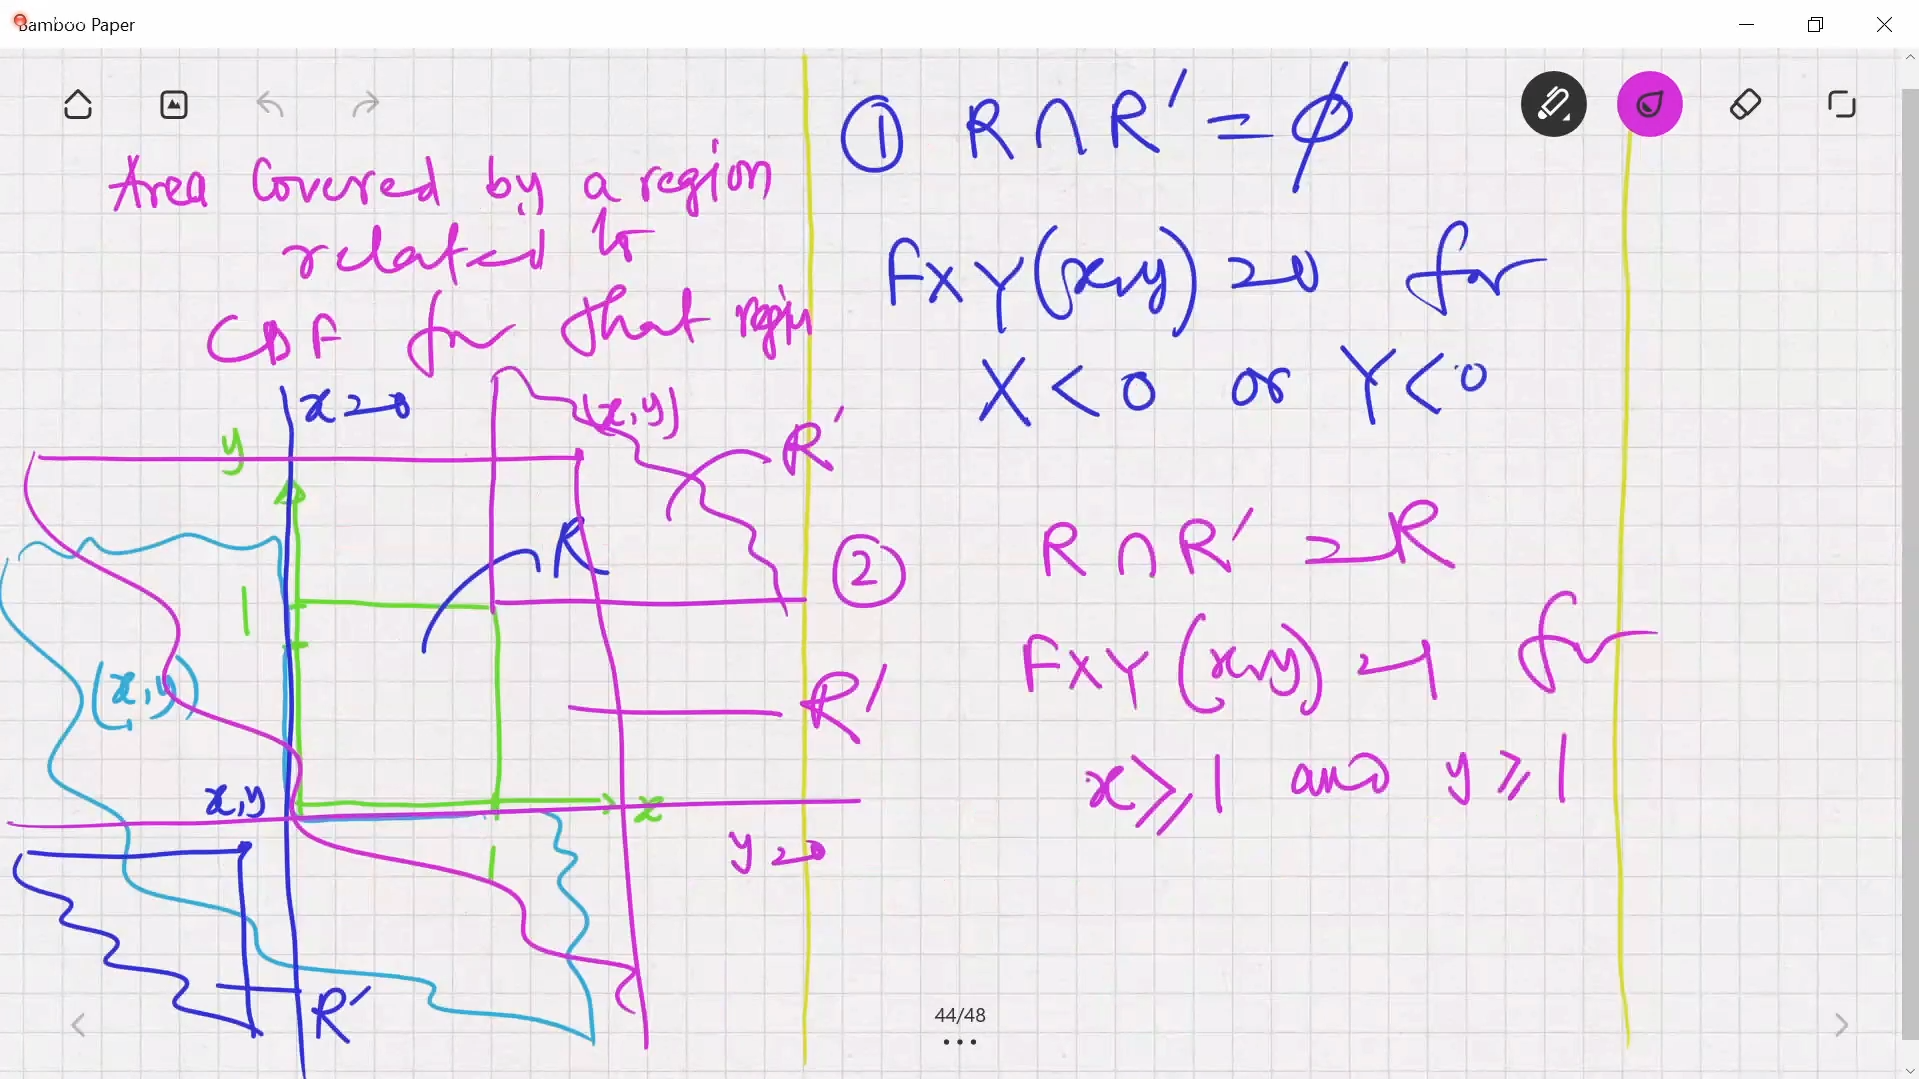 Bamboo Paper
Area Covered by a region
related to
CDF for that region
x=0
(x,y)
R'
y
R
1
R'
(x,y)
x,y
x
y=0
1
R'
① R ∩ R' = ϕ
FXY(x,y) = 0 for
X < 0 or Y < 0
② R ∩ R' = R
FXY (x,y) = 1 for
x ⩾ 1 and y ⩾ 1
44/48